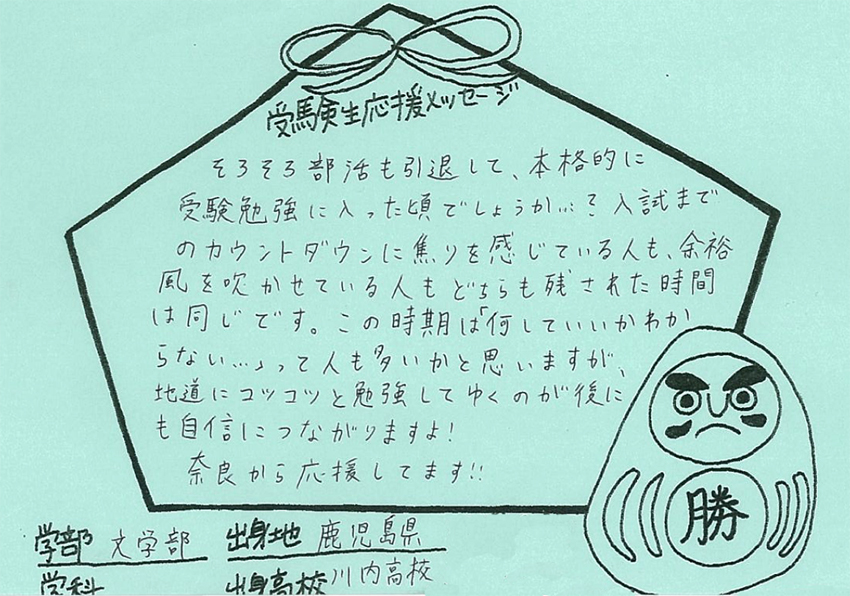 受験生応援メッセージ
そろそろ部活も引退して、本格的に
受験勉強に入った頃でしょうか…?入試まで
のカウントダウンに焦りを感じている人も、余裕
風を吹かせている人もどちらも残された時間
は同じです。この時期は「何していいかわか
らない…」って人も多いかと思いますが、
地道にコツコツと勉強してゆくのが後に
も自信につながりますよ!
奈良から応援してます!!
勝
学部 文学部 出身地 鹿児島県
学科 出身高校 川内高校